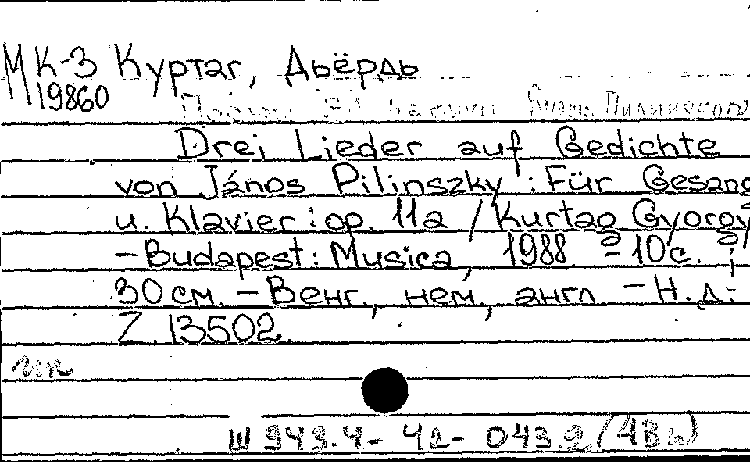 МК-3 Куртаг, Дьёрдь
19860
Drei Lieder auf Gedichte
von János Pilinszky : Für Gesang
u. Klavier : op. 11a / Kurtag Gyorgy
- Budapest : Musica, 1988 - 10 с. ;
30 см. - Венг., нем., англ - Н. д.:
Z. 13502.
Ш 943.4 - 42 - 043.2